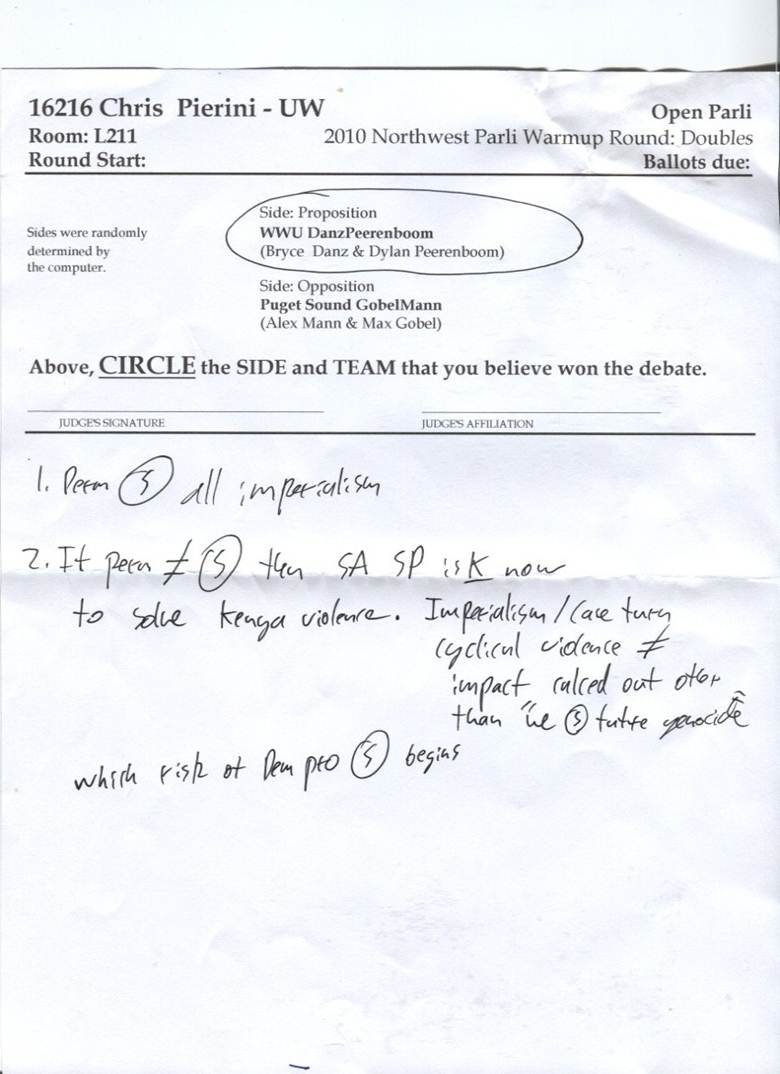 16216 Chris Pierini - UW
Open Parli
Room: L211
2010 Northwest Parli Warmup Round: Doubles
Round Start:
Ballots due:
Sides were randomly
determined by
the computer.
Side: Proposition
WWU DanzPeerenboom
(Bryce Danz & Dylan Peerenboom)
Side: Opposition
Puget Sound GobelMann
(Alex Mann & Max Gobel)
Above, CIRCLE the SIDE and TEAM that you believe won the debate.
JUDGE'S SIGNATURE
JUDGE'S AFFILIATION
1. Perm Ⓢ all imperialism
2. If perm ≠ Ⓢ then SA SP is now
to solve Kenya violence. Imperialism/Case turn
cyclical violence ≠
impact calced out other
than "we Ⓢ future genocide"
which risk of Dem pro Ⓢ begins